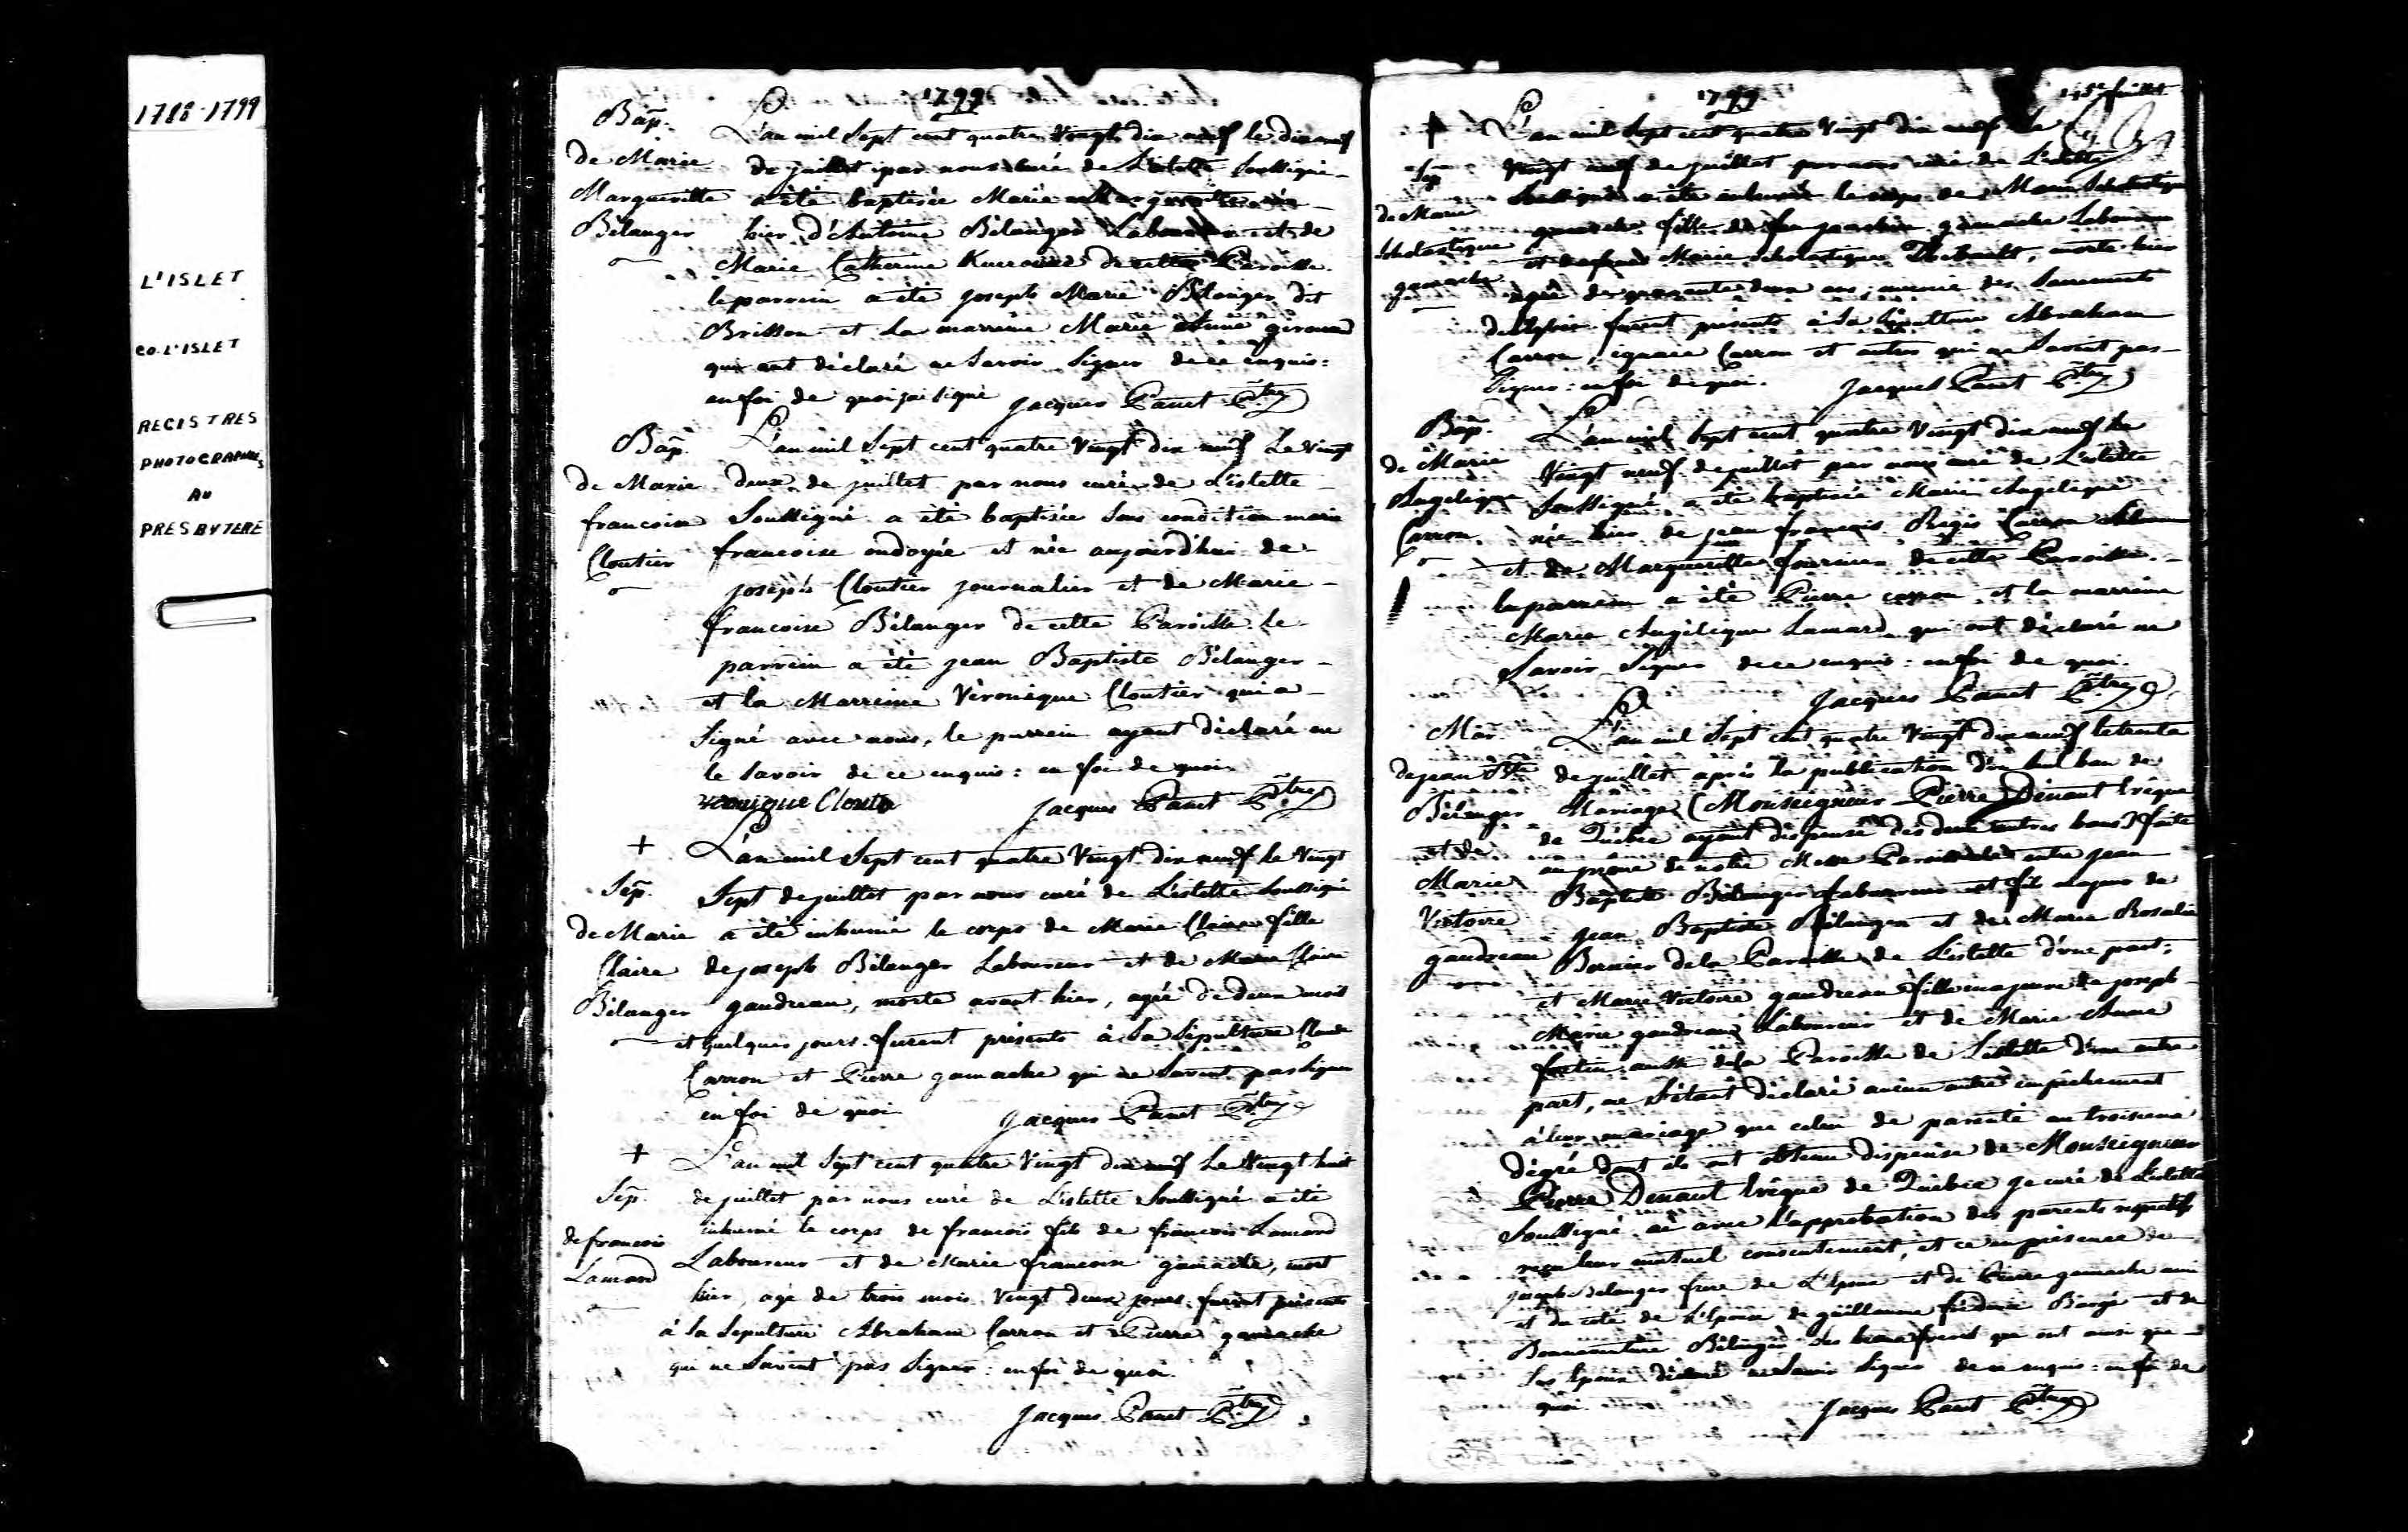 1788-1799
L'ISLET
CO. L'ISLET
REGISTRES
PHOTOGRAPHIÉS
AU
PRESBYTERE
1799
Bap.
de Marie
Margueritte
Bélanger
L'an mil Sept cent quatre Vingt dix neuf le dix neuf
de juillet par nous curé de L'islette Soussigné
a été baptisée Marie Marguerite née
hier d'Antoine Bélanger Laboureur et de
Marie Catherine de cette Paroisse.
le parrein a été joseph Marie Bélanger dit
Brisson et la marreine Marie giroux
qui ont déclaré ne Savoir Signer de ce enquis :
en foi de quoi j'ai signé Jacques Panet Ptre
Bap.
de Marie
francoise
Cloutier
L'an mil Sept cent quatre Vingt dix neuf Le Vingt
deux de juillet par nous curé de L'islette
Soussigné a été baptisée Sous condition marie
francoise ondoyée et née aujourd'hui de
joseph Cloutier journalier et de Marie
francoise Bélanger de cette Paroisse le
parrein a été jean Baptiste Bélanger
et la Marreine Véronique Cloutier qui a
Signé avec nous, le parrein ayant déclaré ne
le Savoir de ce enquis : en foi de quoi
Jacques Panet Ptre
+
Sep.
de Marie
Claire
Bélanger
L'an mil Sept cent quatre Vingt dix neuf le Vingt
Sept de juillet par nous curé de L'islette Soussigné
a été inhumé le corps de Marie Claire fille
de joseph Bélanger Laboureur et de Marie Claire
gaudreau, morte avant hier, agée de deux mois
et quelques jours. furent présents à Sa Sépulture Claude
Carron et Pierre gamache qui ne Savent pas Signer
en foi de quoi Jacques Panet Ptre
+
Sep.
de francois
Lamard
L'an mil Sept cent quatre Vingt dix neuf Le Vingt huit
de juillet par nous curé de L'islette Soussigné a été
inhumé le corps de francois fils de francois Lamard
Laboureur et de Marie francoise gamache, mort
hier, agé de trois mois Vingt deux jours. furent présents
à Sa Sepulture Abraham Carron et Pierre gamache
qui ne Savent pas Signer : en foi de quoi.
Jacques Panet Ptre
1799
feuillet
+
Sep
de Marie
Scholastique
gamache
L'an mil Sept cent quatre Vingt dix neuf le
Vingt neuf de juillet par nous curé de L'islette
Soussigné a été inhumé le corps de Marie Scholastique
gamache fille de feu gamache Laboureur
et Marie Scholastique Thibault, morte hier
agée de quarante deux ans, munie des Sacrements
de L'église. furent présents à Sa Sépulture Abraham
Carron, ignace Carron et autres qui ne Savent pas
Signer : en foi de quoi. Jacques Panet Ptre
Bap.
de Marie
Angelique
Carron
L'an mil Sept cent quatre Vingt dix neuf Le
Vingt neuf de juillet par nous curé de L'islette
Soussigné a été baptisée Marie Angelique
née hier de jean francois Regis Carron
et de Margueritte fournier de cette Paroisse.
le parrein a été Pierre carron et la marreine
Marie Angélique Lamard qui ont déclaré ne
Savoir Signer de ce enquis : en foi de quoi.
Jacques Panet Ptre
Mar.
de jean Bte
Bélanger
et de
Marie
Victoire
gaudreau
L'an mil Sept cent quatre Vingt dix neuf le trente
de juillet après la publication d'un Seul ban de
Mariage (Monseigneur Pierre Denaut Evêque
de Québec ayant dispensé des deux autres bans) faite
au prone de notre Messe Paroissiale entre jean
Baptiste Bélanger Laboureur et fils majeur de
jean Baptiste Bélanger et de Marie Rosalie
Bernier de la Paroisse de L'islette d'une part ;
et Marie Victoire gaudreau fille majeure de joseph
Marie gaudreau Laboureur et de Marie Anne
fortin aussi de la Paroisse de L'islette d'une autre
part, ne S'étant déclaré aucun autre empêchement
à leur mariage que celui de parenté au troisieme
dégré dont ils ont obtenu dispense de Monseigneur
Pierre Denaut Evêque de Québec je curé de L'islette
Soussigné ai avec L'approbation des parents respectifs
reçu leur mutuel consentement, et ce en présence de
joseph Bélanger frere de L'Epoux et de Pierre gamache ami
et du coté de L'Epouse de guillaume féderic Bargé et de
Bonaventure Bélanger Ses beaux freres qui ont ainsi que
Les Epoux déclaré ne Savoir Signer de ce enquis : en foi de
quoi. Jacques Panet Ptre